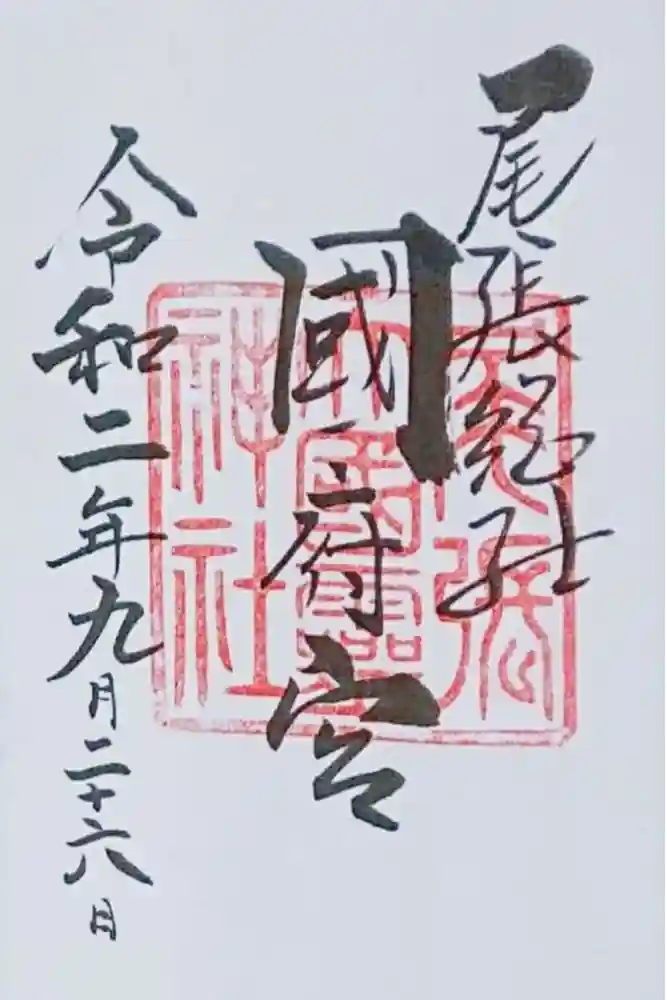 尾張総社
國府宮
令和二年九月二十六日
尾張大國霊神社